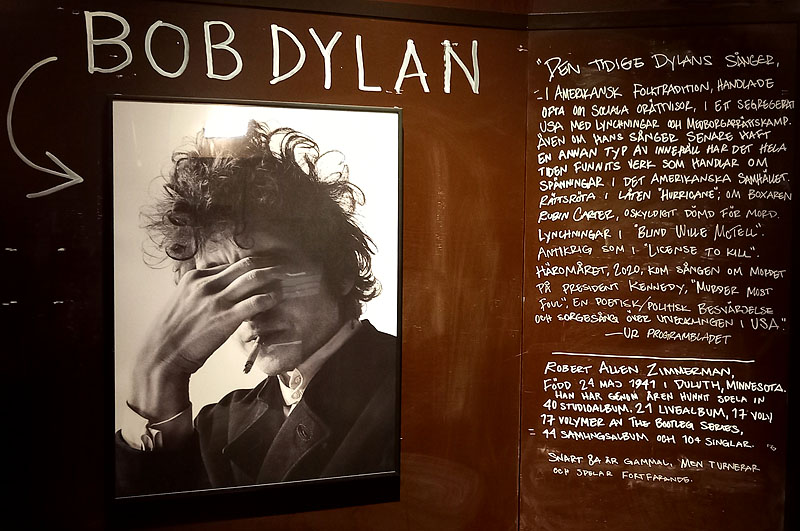 BOB DYLAN
"DEN TIDIGE DYLANS SÅNGER,
I AMERIKANSK FOLKTRADITION, HANDLADE
OFTA OM SOCIALA ORÄTTVISOR, I ETT SEGREGERAT
USA MED LYNCHNINGAR OCH MEDBORGARRÄTTSKAMP.
ÄVEN OM HANS SÅNGER SENARE HAFT
EN ANNAN TYP AV INNEHÅLL HAR DET HELA
TIDEN FUNNITS VERK SOM HANDLAR OM
SPÄNNINGAR I DET AMERIKANSKA SAMHÄLLET.
RÄTTSRÖTA I LÅTEN "HURRICANE", OM BOXAREN
RUBIN CARTER, OSKYLDIGT DÖMD FÖR MORD.
LYNCHNINGAR I "BLIND WILLE MCTELL".
ANTIKRIG SOM I "LICENSE TO KILL".
HÄROMÅRET, 2020, KOM SÅNGEN OM MORDET
PÅ PRESIDENT KENNEDY, "MURDER MOST
FOUL", EN POETISK/POLITISK BESVÄRJELSE
OCH SORGESÅNG ÖVER UTVECKLINGEN I USA."
— UR PROGRAMBLADET
ROBERT ALLEN ZIMMERMAN,
FÖDD 24 MAJ 1941 I DULUTH, MINNESOTA.
HAN HAR GENOM ÅREN HUNNIT SPELA IN
40 STUDIOALBUM, 21 LIVEALBUM, 17 VOLY
17 VOLYMER AV THE BOOTLEG SERIES,
44 SAMLINGSALBUM OCH 104 SINGLAR.
SNART 84 ÅR GAMMAL, MEN TURNERAR
OCH SPELAR FORTFARANDE.